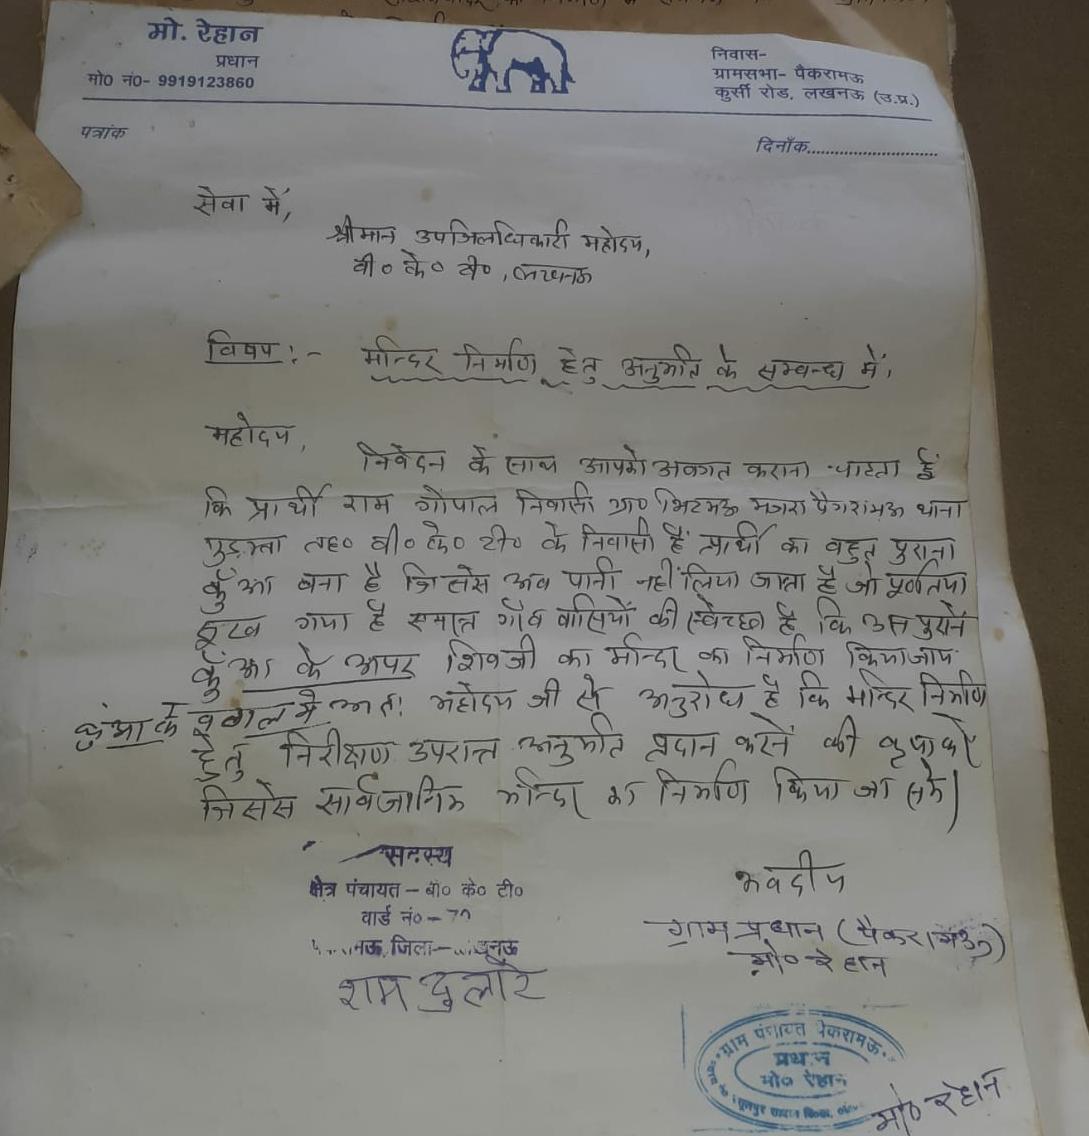 मो. रेहान
प्रधान
मो0 नं0- 9919123860
निवास-
ग्रामसभा- पैकरामऊ
कुर्सी रोड, लखनऊ (उ.प्र.)
पत्रांक
दिनाँक..............................
सेवा में,
श्रीमान उपजिलाधिकारी महोदय,
बी० के० टी०, लखनऊ
विषय :- मन्दिर निर्माण हेतु अनुमति के सम्बन्ध में,
महोदय,
निवेदन के साथ आपको अवगत कराना चाहता हूँ
कि प्रार्थी राम गोपाल निवासी ग्रा० भिटमऊ मजरा पैगरामऊ थाना
गुड़म्बा तह० बी० के० टी० के निवासी हैं प्रार्थी का बहुत पुराना
कुँआ बना है जिससे अब पानी नहीं लिया जाता है जो पूर्णतया
सूख गया है समस्त गाँव वासियों की स्वेच्छा है कि उस पुराने
कुँआ के ऊपर शिवजी का मन्दिर का निर्माण किया जाय
कुंआ के बगल में अतः महोदय जी से अनुरोध है कि मन्दिर निर्माण
हेतु निरीक्षण उपरान्त अनुमति प्रदान करने की कृपा करें
जिससे सार्वजानिक मन्दिर का निर्माण किया जा सके|
सदस्य
क्षेत्र पंचायत - बी० के० टी०
वार्ड नं० -
जिला-
राम दुलारे
भवदीय
ग्राम प्रधान (पैकरामऊ)
मो० रेहान
ग्राम पंचायत पैकरामऊ
प्रधान
मो० रेहान
मो० रेहान